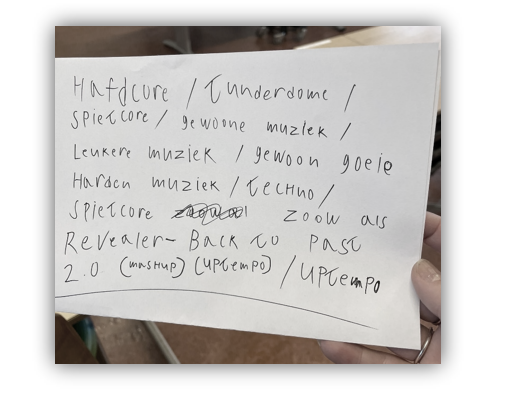 Hardcore / Tunderdome /
Spietcore / gewoone muziek /
Leukere muziek / gewoon goeie
Harden muziek / Techno /
Spietcore zoow als
Revealer - Back to past
2.0 (mashup) (uptempo) / uptempo